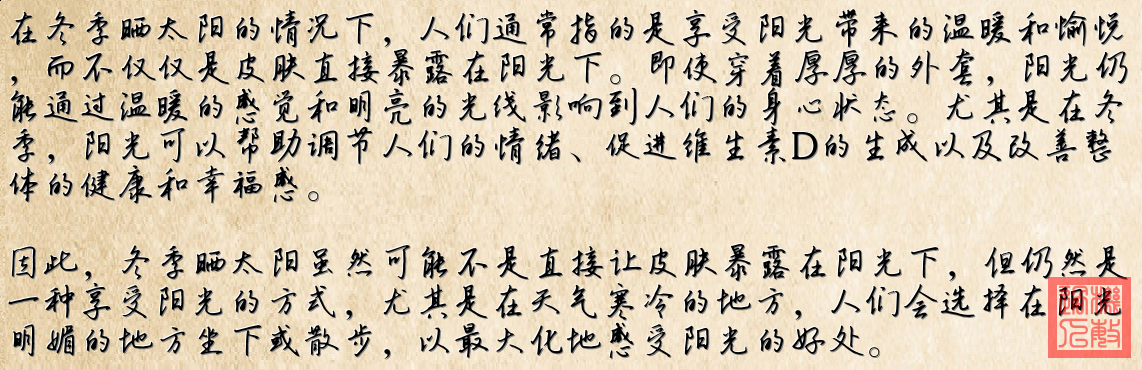 在冬季晒太阳的情况下，人们通常指的是享受阳光带来的温暖和愉悦
，而不仅仅是皮肤直接暴露在阳光下。即使穿着厚厚的外套，阳光仍
能通过温暖的感觉和明亮的光线影响到人们的身心状态。尤其是在冬
季，阳光可以帮助调节人们的情绪、促进维生素D的生成以及改善整
体的健康和幸福感。
因此，冬季晒太阳虽然可能不是直接让皮肤暴露在阳光下，但仍然是
一种享受阳光的方式，尤其是在天气寒冷的地方，人们会选择在阳光
明媚的地方坐下或散步，以最大化地感受阳光的好处。